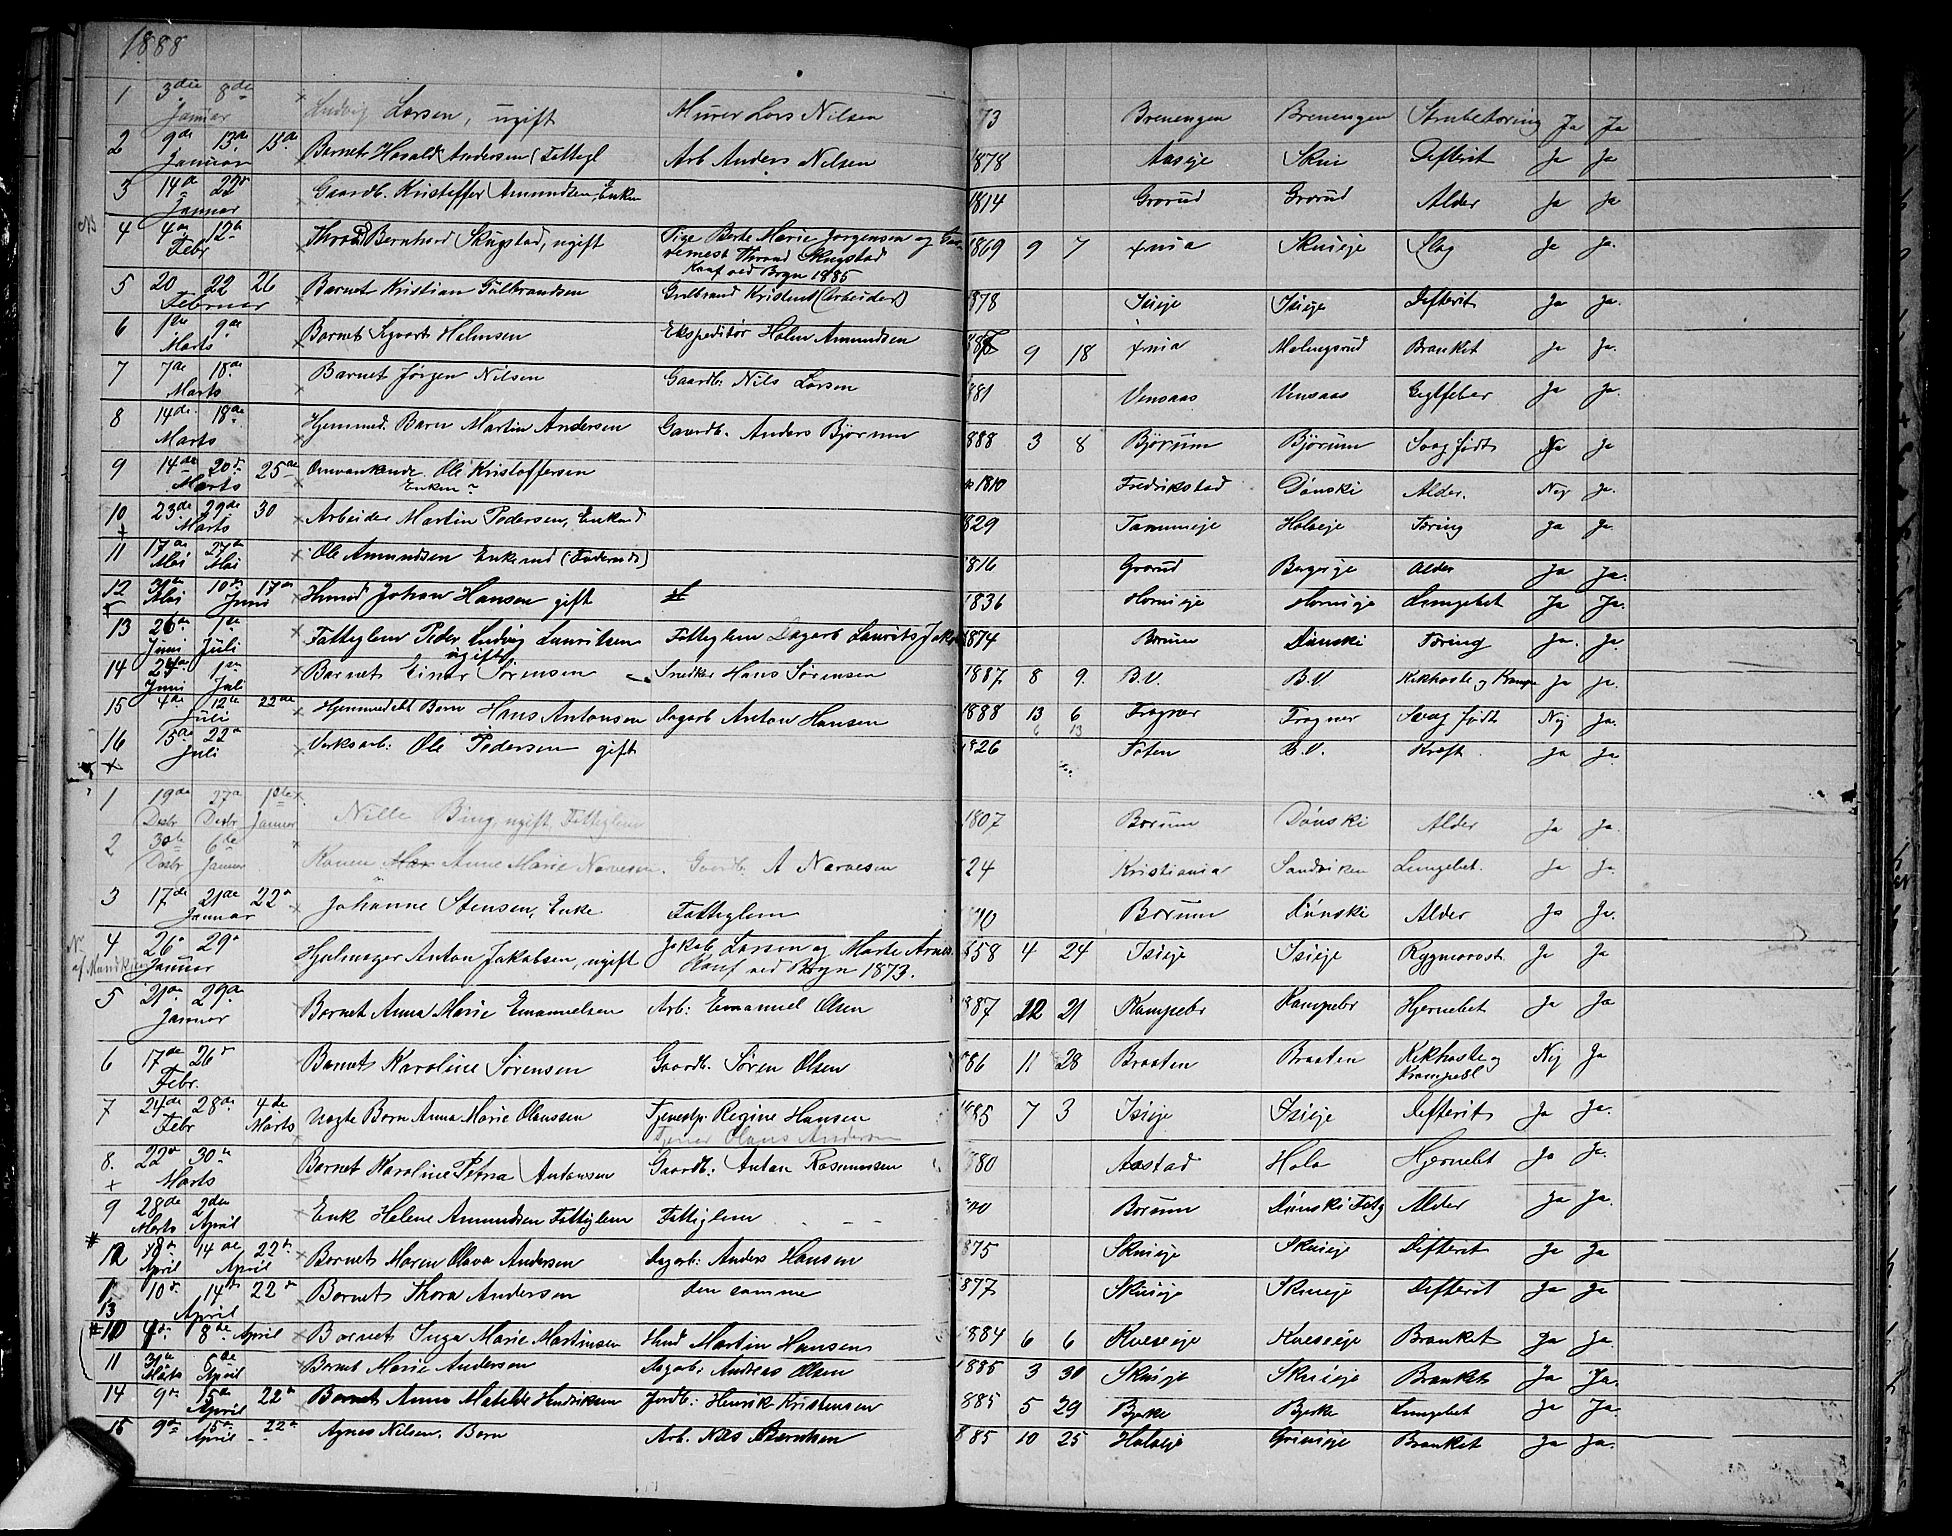 1888
1 3die 8de Januar Ludvig Larsen, ugift Murer Lars Nilsen 73 Brenengen Brenengen Ja Ja
2 9de 13de 15de Januar Barnet Harald Andersen (Fattigl Arb Anders Nilsen 1878 Aaseje Skui Difterit Ja Ja
3 14de 22de Januar Gaardb. Kristoffer Amundsen, Enkem 1814 Grorud Grorud Alder Ja Ja
NB 4 4de 12te Febr Thrond Bernhard Skugstad, ugift Pige Berte Marie Jørgensen og Thrond Skugstad 1869 9 7 Xnia Skuieje Slag Ja Ja.
Konf ved Bryn 1885
5 20 22 26 Februar Barnet Kristian Gulbrandsen Gulbrand Kristens (Arbeider) 1878 Isieje Isieje Difterit Ja Ja.
6 1ste 9de Marts Barnet Sigvart Halmsen Ekspeditør Halm Amundsen 9 18 Xnia Malmgsrud Bronkit Ja Ja.
7 7de 18de Marts Barnet Jørgen Nilsen Gaardb: Nils Larsen 881 Vensaas Vensaas Gigtfeber Ja Ja.
8 14de 18de Marts Hjemmed. Barn Martin Andersen Gaardb. Anders Bjørum 888 3 8 Bjørum Bjørum Svag født Ja Ja
9 14de 20de 25de Marts Omvankende Ole Kristoffersen 1810 Fredrikstad Dønski Alder. Nej Ja.
Enkem
10 23de 29de 30 Marts Arbeider Martin Pedersen, Enkemd 829 Tammeje Holoeje Tæring Ja Ja.
11 17de Mai 27de Mai Ole Amundsen Enkemd (Føderaads) 1816 Grorud Alder Ja Ja.
12 30te Mai 10de Juni 17de Husmd Johan Hansen gift 1836 Hornieje Hornieje Lungebet Ja Ja.
13 26de Juni 1ste Juli Fattiglem Peder Ludvig Lauritsen Fattiglem Dagarb Laurits 1874 Borum Dønski Tæring Ja. Ja.
ugift
14 24de Juni 1ste Juli Barnet Einar Sørensen Snedker Hans Sørensen 1887 8 9. B.V. B.V. Kikhoste og Krampe Ja Ja.
15 4de 12te 22de Juli Hjemmedøbt Barn Hans Antonsen Dagarb Anton Hansen 1888 13 6 Frogner Frogner Svag født Nej Ja.
16 15de 22de Juli Verksarb: Ole Pedersen gift 1826 Toten B.V. Kræft. Ja Ja
1 19de Desbr 27de Desbr 1ste Januar Nille Bing, ugift Fattiglem 1807 Borum Dønski Alder Ja Ja.
2 30te Desbr 6te Januar Konen Anne Marie Narvesen. Gaardb. A Narvesen 24 Kristiania Sandviken Lungebet. Ja Ja.
3 17de 21de 22de Januar Johanne Stensen, Enke Fattiglem Borum Dønski Alder Ja Ja.
4 26de 29de Januar Hjulmager Anton Jakobsen, ugift Jakob Larsen og Marte 858 4 24 Isieje Isieje Rygmarvst Ja Ja
Konf ved Bryn 1873.
5 21de 29de Januar Barnet Anna Marie Emanuelsen Arb: Emanuel Olsen 887 12 21 Kampebr Kampebr Hjernebet Ja Ja
6 17de 26de Febr. Barnet Karoline Sørensen Gaardb. Søren Olsen 86 11 28 Braaten Braaten Kikhoste og Krampesl Nej Ja
7 24de 28de Febr 4de Marts uægte Barn Anna Marie Olaussen Tjenestp: Regine Hansen 85 7 3 Isieje Isieje Difterit Ja Ja.
Tjener Olaus Andersen
8. 22de 30te Marts Barnet Karoline Petra Antonsen Gaardb: Anton Rasmussen 880 Aastad Hola Hjernebet Ja Ja.
9 28de Marts 2den April Enk Helene Amundsen Fattiglem Fattiglem Borum Dønski Fatg Alder Ja Ja.
12 8de April 14de 22de April Barnet Maren Olava Andersen Dagarb: Anders Hansen 875 Skuieje Skuieje Difterit Ja Ja
13 10de 14de 22de April Barnet Thora Andersen den samme 877 Skuieje Skuieje Difterit Ja Ja
10 8de April Barnet Inga Marie Martinsen Husmd Martin Hansen 1884 6 6 Kveseeje Kveseeje Bronkit Ja Ja.
11 31te Marts 8de April Barnet Marie Andersen Dagarb: Andreas Olsen 1885 3 30 Skuieje Skuieje Bronkit Ja Ja.
14 9de 15de 22de April Barnet Anna Matilde Henriksen Jordb: Henrik Kristensen 885 5 29 Bjerke Bjerke Lungebet Ja Ja.
15 9de 15de 22de April Agnes Nilsen. Barn Arb. Nils Berntsen 885 10 25 Holoeje Grinieje Bronkit Ja Ja.